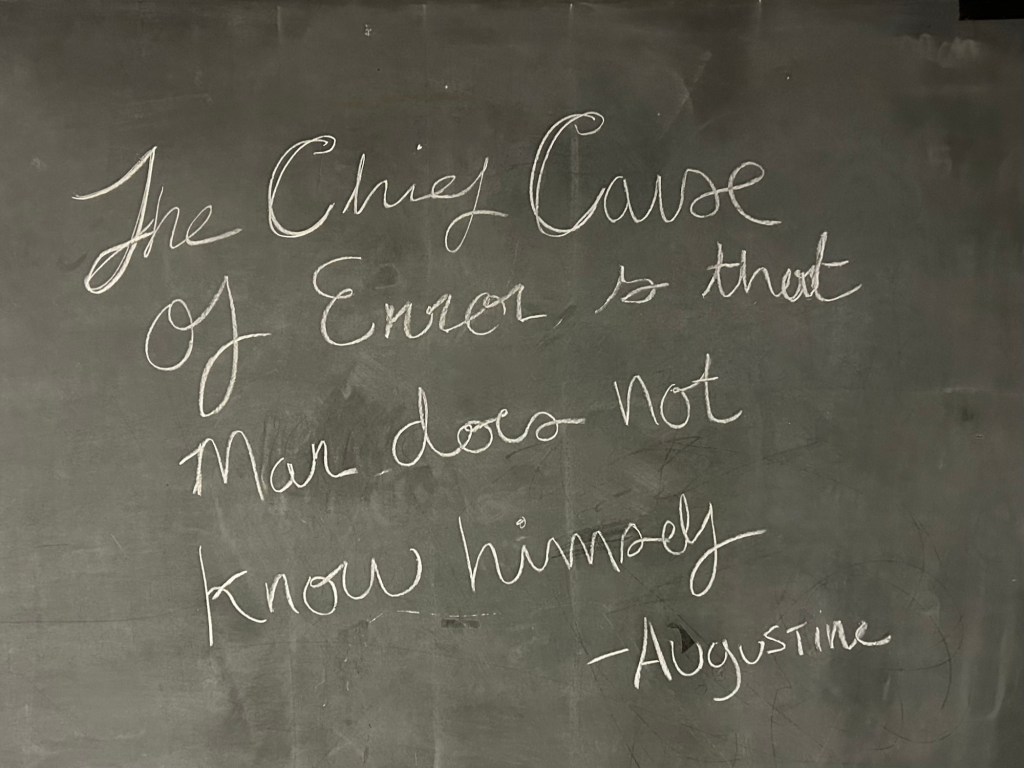 The Chief Cause
Of Error is that
Man does not
know himself
-Augustine